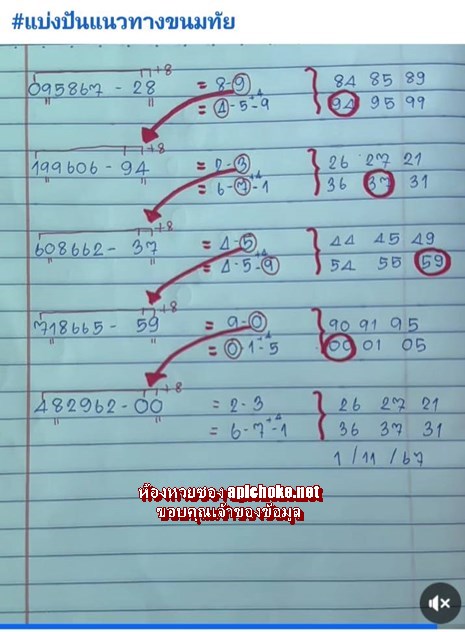 #แบ่งปันแนวทางขนมทัย
+8
095867 - 28 = 8-9 } 84 85 89
+4
= 4-5-9 94 95 99
+8
199606 - 94 = 2-3 } 26 27 21
+4
= 6-7-1 36 37 31
+8
608662 - 37 = 4-5 } 44 45 49
+4
= 4-5-9 54 55 59
+8
718665 - 59 = 9-0 } 90 91 95
+4
= 0-1-5 00 01 05
+8
482962-00 = 2-3 } 26 27 21
+4
= 6-7-1 36 37 31
1/11/67
ห้องหวยซอง apichoke.net
ขอบคุณเจ้าของข้อมูล